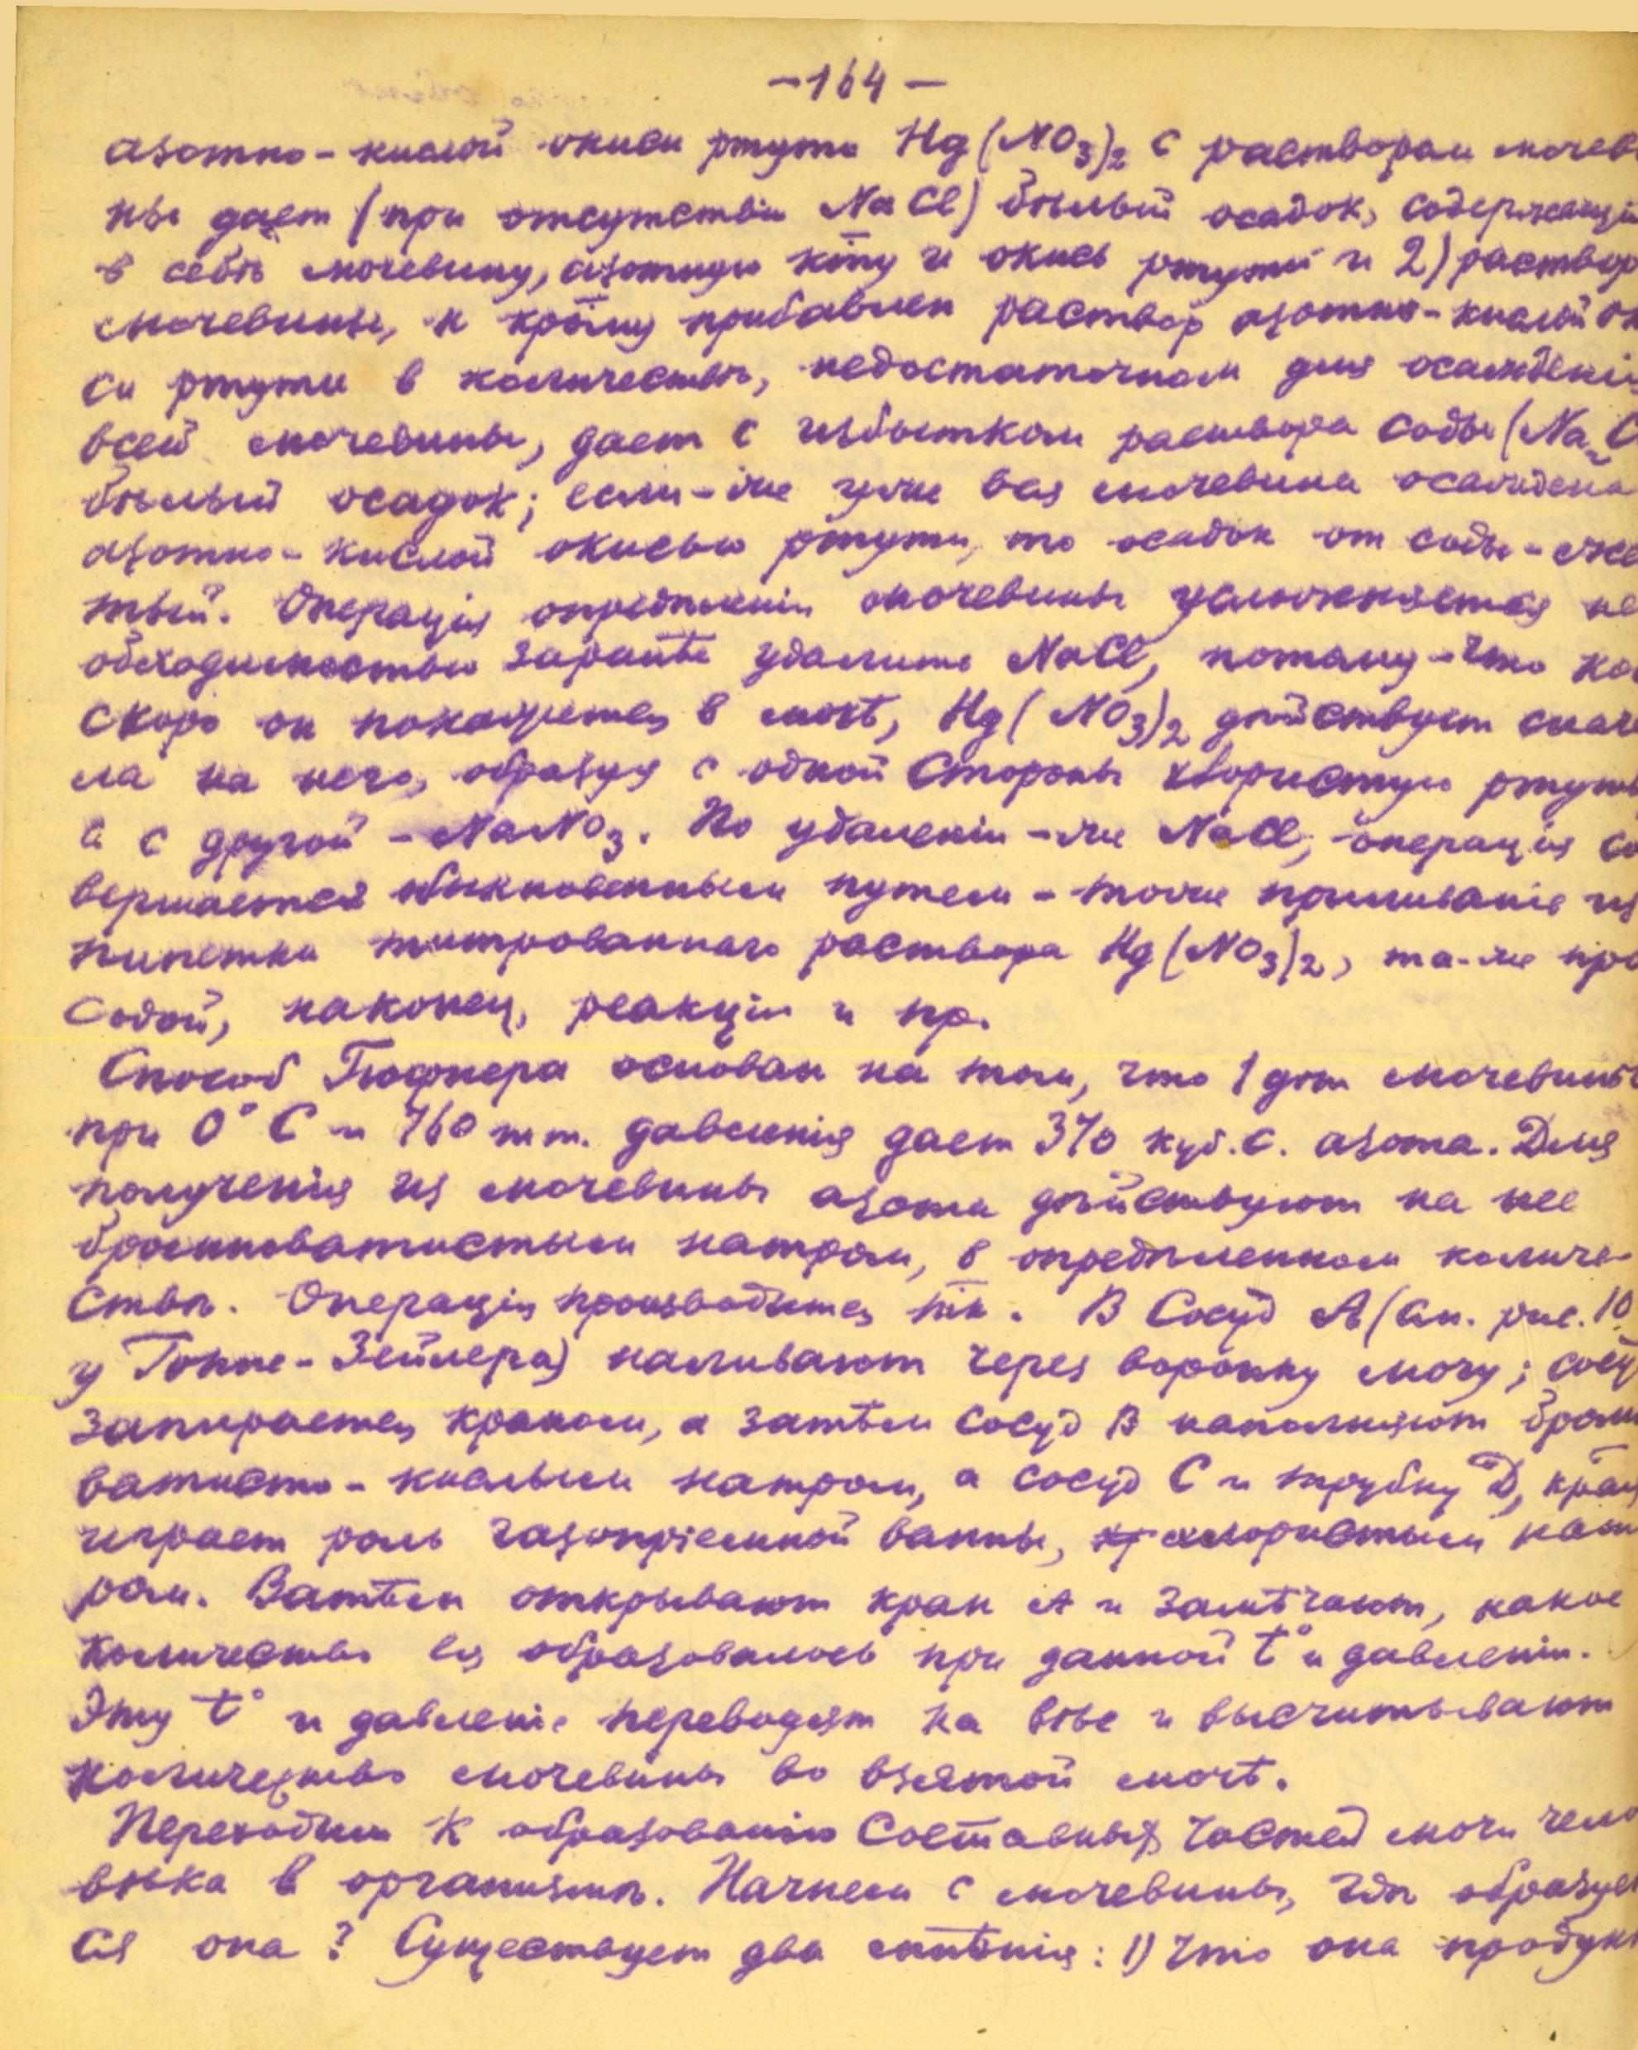 -164-
азотно-кислой окиси ртути Hg(NO3)2 с раствором мочеви
ны дает (при отсутствіи NaCl) бѣлый осадок, содержащій
в себѣ мочевину, азотную кту и окись ртути и 2) раствор
мочевины, к крому прибавлен раствор азотно-кислой ок
си ртути в количествѣ, недостаточном для осажденія
всей мочевины, дает с избытком раствора соды (Na2C
бѣлый осадок; если-же уже вся мочевина осаждена
азотно-кислой окисью ртути, то осадок от соды - жел
тый. Операція опредѣленія мочевины усложняется не
обходимостью заранѣе удалить NaCl, потому-что ко
скоро он покажется в мочѣ, Hg(NO3)2 дѣйствует снача
ла на него, образуя с одной стороны хлористую ртуть
а с другой - NaNO3. По удаленіи-же NaCl, операція со
вершается обыкновенным путем - тоже приливаніе из
пипетки титрованнаго раствора Hg(NO3)2, та-же про
содой, наконец, реакціи и пр.
Способ Гюфнера основан на том, что 1 gm мочевины
при 0° C и 760 mm. давленія дает 370 куб. с. азота. Для
полученія из мочевины азота дѣйствуют на нее
бромноватистым натром, в опредѣленном количе-
ствѣ. Операція производится так. В сосуд A (см. рис. 10
у Гоппе-Зейлера) наливают через воронку мочу; сосуд
запирается краном, а затѣм сосуд B наполняют бромн
ватисто-кислым натром, а сосуд C и трубку D, края
играет роль газопріемной ванны, хлористым нат
ром. Затѣм открывают кран A и замѣчают, какое
количество ея образовалось при данной t° и давленіи.
Эту t° и давленіе переводят на все и высчитывают
количество мочевины во взятой мочѣ.
Переходим к образованію составных частей мочи чело
вѣка в организмѣ. Начнем с мочевины, гдѣ образует
ся она? Существует два мнѣнія: 1) что она продукт